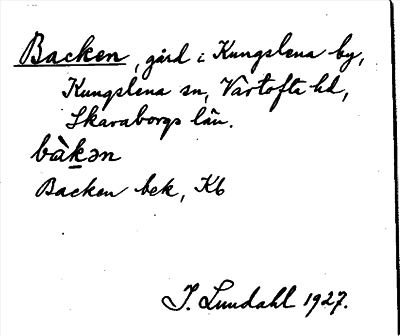 Backen, gård i Kungslena by,
Kungslena sn, Vartofta hd,
Skaraborgs län.
bàkən
Backen bek, Kb
I. Lundahl 1927.